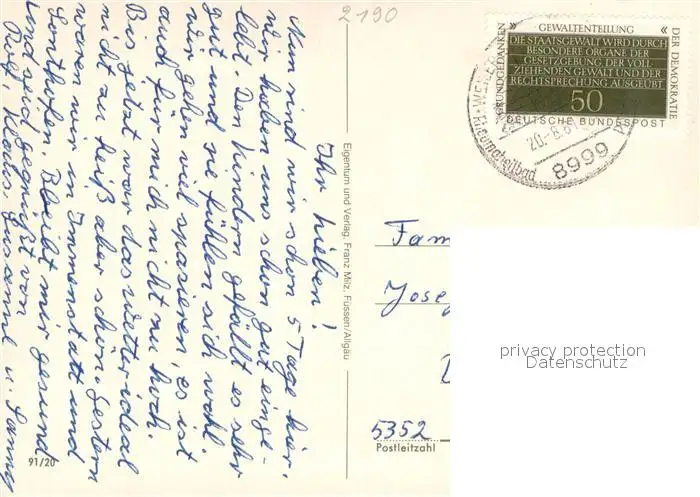 Ihr Lieben!
Nun sind wir schon 5 Tage hier.
Wir haben uns schon gut einge-
lebt. Den Kindern gefällt es sehr
gut und sie fühlen sich wohl.
Wir gehen viel spazieren, es ist
auch für mich nicht zu hoch.
Bis jetzt war das Wetter ideal
nicht zu heiß aber schön. Gestern
waren wir in Immenstatt und
Sonthofen. Bleibt mir gesund
und seid gegrüßt von
Rolf, Klaus, Susanne u. Sanny
91/20
2190
Eigentum und Verlag: Franz Milz, Füssen/Allgäu
» GEWALTENTEILUNG «
GRUNDGEDANKEN
DER DEMOKRATIE
DIE STAATSGEWALT WIRD DURCH
BESONDERE ORGANE DER
GESETZGEBUNG, DER VOLL-
ZIEHENDEN GEWALT UND DER
RECHTSPRECHUNG AUSGEÜBT
50
DEUTSCHE BUNDESPOST
20.-8.81
8999
Fam
Jose
5352
Postleitzahl
privacy protection
Datenschutz